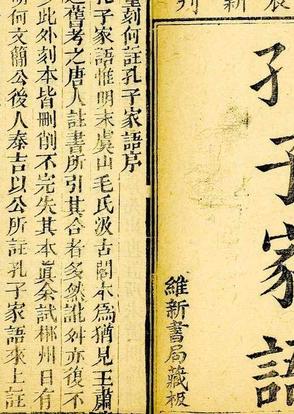 新
孔子家語
維新書局藏板
重刻何註孔子家語序
孔子家語惟明末虞山毛氏汲古閣本為猶見王肅
之舊考之唐人註書所引其合者多然訛舛亦復不
少此外刻本皆刪削不完失其本眞余試郴州日有
明何文簡公後人泰吉以公所註孔子家語來上註